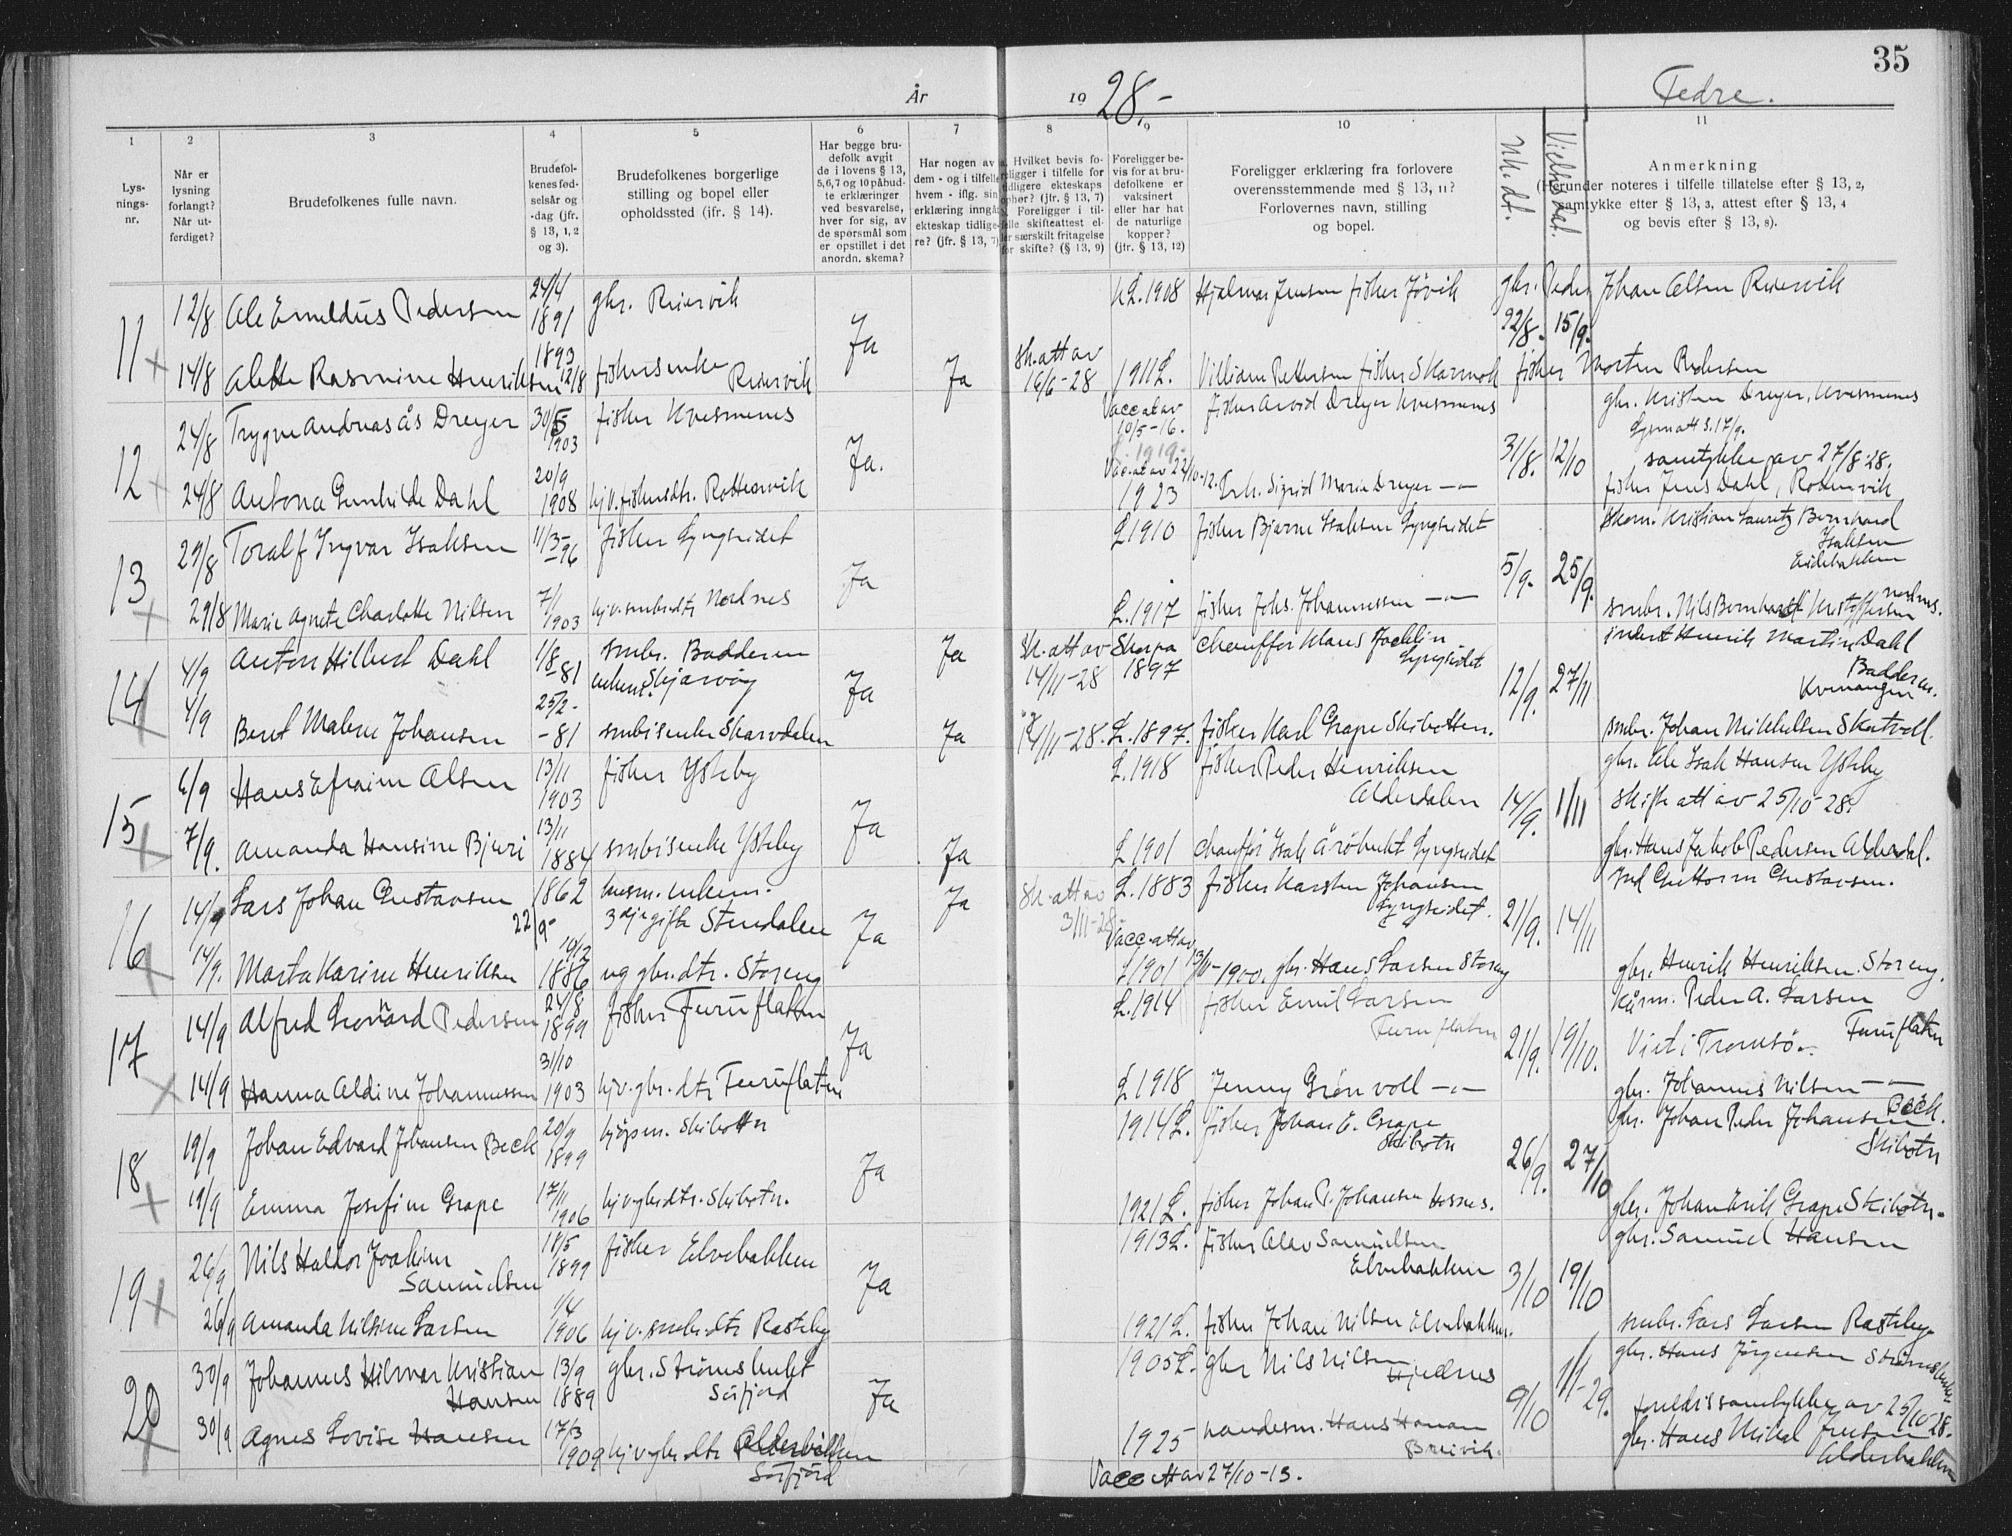 35
År 1928.-
Fedre.
1 2 3 4 5 6 7 8 9 10 11
Lys-
nings-
nr.
Når er
lysning
forlangt?
Når ut-
ferdiget?
Brudefolkenes fulle navn.
Brudefol-
kenes fød-
selsår og
-dag (jfr.
§ 13, 1, 2
og 3).
Brudefolkenes borgerlige
stilling og bopel eller
opholdssted (ifr. § 14).
Har begge bru-
defolk avgit
de i lovens § 13,
5, 6, 7 og 10 påbud-
te erklæringer
ved besvarelse,
hver for sig, av
de spørsmål som
er opstillet i det
anordn. skema?
Har nogen av
dem - og i tilfelle
hvem - iflg. sin
erklæring inngå
ekteskap tidlige-
re? (jfr. § 13, 7)
Hvilket bevis fo-
religger i tilfelle for
tidligere ekteskaps
ophør? (jfr. § 13, 7)
Foreligger i til-
felle skifteattest el-
ler særskilt fritagelse
for skifte? (§ 13, 9)
Foreligger be-
vis for at bru-
defolkene er
vaksinert
eller har hat
de naturlige
kopper?
(jfr. § 13, 12)
Foreligger erklæring fra forlovere
overensstemmende med § 13, 11?
Forlovernes navn, stilling
og bopel.
Utst. dt.
Vielses dat.
Anmerkning
(Herunder noteres i tilfelle tillatelse efter § 13, 2,
samtykke efter § 13, 3, attest efter § 13, 4
og bevis efter § 13, 8).
11 12/8 Ole Emeldus Pedersen 24/4 1891 gbr. Reiervik Ja 1908 Hjalmar Jensen fisker Jövik 22/8. 15/9. gbr. Peder Johan Olsen Reiervik
14/8 Alette Rasmine Henriksen 1893 12/8 fiskersenke Reiervik Ja Sk. att av 16/6-28 1911 L. Villiam Pettersen fisker Skarmok fisker Morten Pedersen
12 24/8 Trygve Andreas Ås Dreyer 30/5 1903 fisker Kvesmenes Ja. Vacc at av 10/5-16. fisker Arvid Dreyer Kvesmenes 31/8. 12/10 gbr. Kristen Dreyer, Kvesmenes
Lysn att s. 17/9.
samtykke av 27/8 28.
24/8 Antona Gunhilde Dahl 20/9 1908 hjv. fiskersdtr. Rottenvik Vac. at av 22/10-12. 1923 Frk. Sigrid Marie Dreyer —"— fisker Jens Dahl, Rottenvik
13 29/8 Toralf Ingvar Isaksen 11/3-96 fisker Lyngseidet Ja L 1910 fisker Bjarne Isaksen Lyngseidet 5/9. 25/9. skom. Kristian Lauritz Bernhard
Isaksen
Eidebakken
29/8 Marie Agnete Charlotte Nilsen 7/1 1903 hjv. smbrdtr Nordnes L. 1917 fisker Johs. Johannessen —"— smbr. Nils Bernhard Kristoffersen Nordnes.
14 4/9 Anton Hilbert Dahl 1/8-81 smbr. Badderen
enkem. Skjærvøy Ja Ja Sk. att av 14/11-28 Skopa 1897 Chauffør Klaus Joachim
Lyngseidet 12/9. 27/11 inderst Henrik Martin Dahl
Badderen.
Kvenangen
4/9 Berit Malene Johansen 25/2-81 smbrsenke Skarvdalen Ja 14/11-28. L. 1897. fisker Karl Grape Skibotten. smbr. Johan Mikkelsen Skatvoll.
15 6/9 Hans Efraim Olsen 13/11 1903 fisker Ysteby Ja L. 1918 fisker Peder Henriksen
Olderdalen 14/9. 1/11 gbr. Ole Isak Hansen Ysteby
skifte att av 25/10-28.
7/9. Amanda Hansine Bjuri 13/11 1884 smbrsenke Ysteby Ja L 1901 chauffør Isak Årøbukt Lyngseidet gbr. Hans Jakob Pedersen Olderdal.
16 14/9 Lars Johan Gustavsen 1862 22/9- husm. enkem.
3dje gifte Stordalen Ja Ja Sk. att av 3/11-28 L. 1883 fisker Karsten Johansen
Lyngseidet. 21/9. 14/11 Ind Guttorm Gustavsen.
14/9. Marta Karine Henriksen 19/12 1886 ug gbr. dtr. Storeng Vacc. att av 13/10-1900. L 1901 gbr. Hans Larsen Storeng gbr. Henrik Henriksen Storeng.
17 14/9 Alfred Leonard Pedersen 24/8 1899 fisker Furuflaten Ja L. 1914 fisker Emil Larsen
Furuflaten 21/9. 19/10. Kårm. Peder A. Larsen
Furuflaten
Viet i Tromsö.
14/9 Hanna Aldine Johannessen 31/10 1903 hjv. gbr. dtr Furuflaten L 1918 Jenny Grönvoll —"— gbr. Johannes Nilsen —"—
18 19/9 Johan Edvard Johansen Beck 20/9 1899 kjöpm. Skibotn Ja 1914 L. fisker Johan E. Grape
Skibotn 26/9. 27/10 gbr. Johan Peder Johansen Beck.
Skibotn
19/9 Emma Josefine Grape 17/11 1906 hjv gbrdtr. Skibotn. 1921 L. fisker Johan P. Johansen Hesnes. gbr. Johan Erik Grape Skibotn.
19 26/9 Nils Haldor Joakim
Samuelsen 18/5 1899 fisker Elvebakken Ja 1913 L. fisker Olav Samuelsen
Elvebakken 3/10 19/10 gbr. Samuel Hansen
26/9 Amanda Nilsine Larsen 1/4 1906 hjv. smbrdtr Rasteby 1921 L. fisker Johan Nilsen Elvebakken. smbr. Lars Larsen Rasteby
20 30/9 Johannes Hilmar Kristian
Hansen 13/9 1889 gbr. Strømsbukt
Sörfjord Ja 1905 L. gbr Nils Nilsen
Hjellnes 9/10 1/1-29. gbr. Hans Jørgensen
foreldresamtykke av 25/10-28.
30/9 Agnes Lovise Hansen 17/3 1909 hjv gbr. dtr Olderbakken
Sörfjord 1925 handesm. Hans Hansen
Breivik. gbr. Hans Mikal Jensen
Olderbakken
Vacc att av 27/10-13.